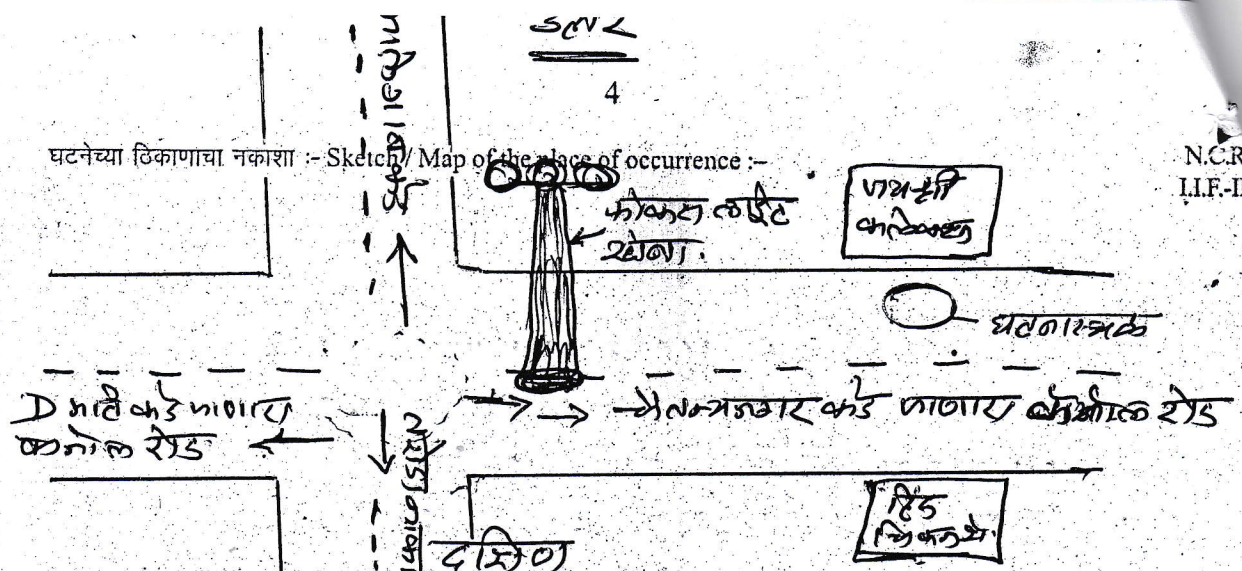 उत्तर
4
घटनेच्या ठिकाणाचा नकाशा :- Sketch / Map of the place of occurrence :-
N.C.R
I.I.F.-I
फोकस लाईट
खांबा.
जयश्री
कलेक्शन
घटनास्थळ
D मार्ट कडे जाणारा
कॅनॉल रोड
चैतन्यनगर कडे जाणारा कॅनॉल रोड
हिंद
चिकन से.
दक्षिण